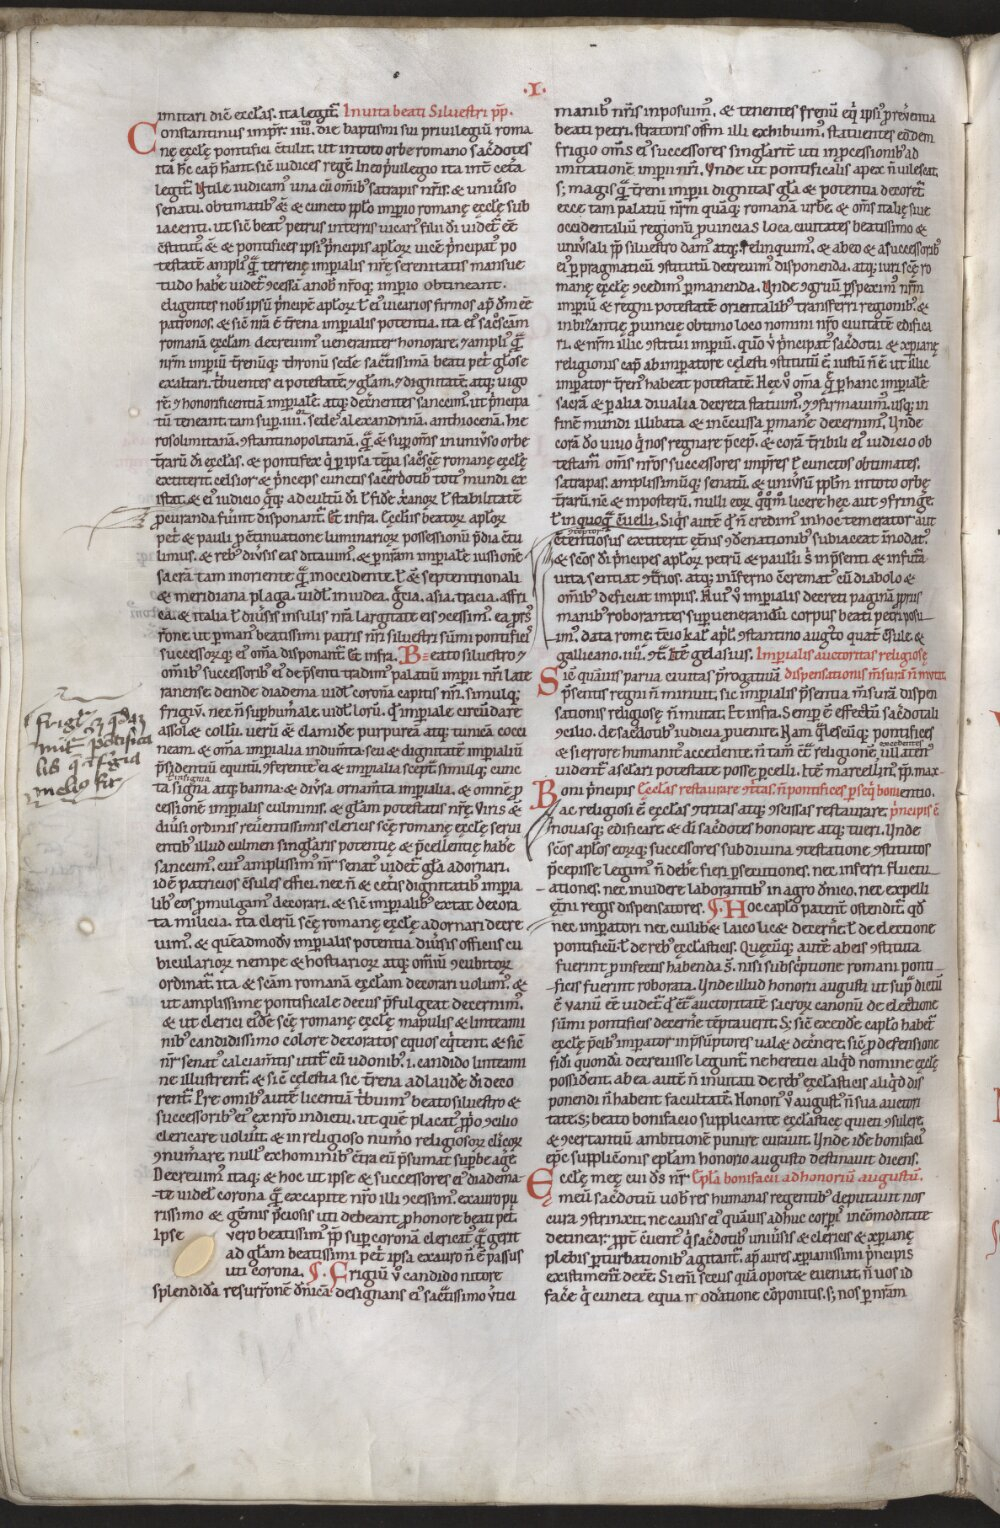 ·I·
imitari dicē eccl̄as. ita legit͛. In uita beati Siluestri pp̄.
Constantinus imp̄r. iiii. die baptismi sui priuilegiū roma
nę ęccl̄ę pontifici c̄tulit. ut in toto orbe romano sac̄dotes
legit͛. Vtile iudicam᷒ una cū om̄ib᷒ satrapis nr̄is. & uniuso
senatu. obtimatib᷒ &̄ & cuncto pp̄lo imp̄io romanę ęccl̄ę sub
iacenti. ut sic̄ beat᷒ petrus in terris uicari᷒ filii dī uidet͛ eē
c̄stitut᷒. &̄ & pontifices ipsi᷒ p̄ncipis apl̄oꝝ uicē p̄ncipat᷒ po
testatē ampli᷒ qͣ̄ terrenę imp̄ialis nr̄ę serenitatis mansue
tudo hab̄e uidet͛ ꝯcessā a nob̄ nr̄oq; imp̄io obtineant.
eligentes nob̄ ipsū p̄ncipē apl̄oꝝ ł ei᷒ uicarios firmos ap̄ dm̄ eē
patronos. & sic̄ nr̄a ē t̄rena imp̄ialis potentia. ita ei᷒ sac̄scām
romanā ęccl̄am decreuim᷒ ueneranter honorare. & ampli᷒ qͣ̄
nr̄m imp̄iū t̄renūq; thronū sedē sac̄tissimā beati pet̄ gl̄ose
exaltari. t̄buentes ei potestatē. & gl̄am. & dignitatē. atq; uigo
rē. & honorificentiā imp̄iale. atq; dec̄nentes sancim᷒. ut p̄ncipa
tū teneant. tam sup̄ iiii. sedes alexandrinā. anthiocenā. hie
rosolimitanā. ꝯstantinopolitanā. qͣ̄ & sup̄ om̄s in uniuso orbe
t̄raꝝ dī ęccl̄as. & pontifex q̇ ꝑ ipsa tꝑa sac̄sc̄ę romanę ęccl̄ę
extiterit. celsior & p̄nceps cunctis sacerdotib᷒ toti᷒ mundi ex
istat. & ei᷒ iudicio q̄q; ad cultū dī ł fidē xp̄anoꝝ ł stabilitatē
ꝓcuranda fuīnt disponant͛. Et infra. Ecclesiis beatoꝝ apl̄oꝝ
pet̄ & pauli ꝓ c̄tinuatione luminarioꝝ possessionū p̄dia c̄tu
limus. & reb᷒ diūsis eas ditauim᷒. & ꝑ nr̄am imp̄ialē iussionē
sacrā tam in oriente qͣ̄ in occidente. ł &̄ septentrionali
& meridiana plaga. uidl̄ in iudea. gr̄cia. asia. tracia. affri
ca. & italia ł diūsis insulis nr̄a largitate eis ꝯcessim᷒. ea
successorꝝq; ei᷒ om̄a disponant͛. Et infra. Beato siluestro &
om̄ib᷒ successorib᷒ ei᷒ de p̄senti tradim᷒ palatiū imp̄ii nr̄i late
ranense. deinde diadema uidl̄ coronā capitis nr̄i. simulq;
frigiū. nec n̄ sup̄humerale. uidl̄ lorū. q̇ imp̄iale circūdare
assolꝫ collū. uerū & clamidē purpureā. atq; tunicā cocci
neam. & om̄a imp̄ialia indum̄ta. seu & dignitatē imp̄ialiū
p̄sidentiū equitū. ꝯferentes ei & imp̄ialia sceptra. simulq; cunc
ta signa. atq; banna. & diūsa ornam̄ta imp̄ialia. & omnē ꝓ
infignia
cessionē imp̄ialis culminis. & gl̄am potestatis nr̄ę. Viris &
diūsi ordinis reūentissimis clericis sc̄ę romanę ęccl̄ę serui
entib᷒ illud culmen singl̄aris potentię & p̄cellentię hab̄e
sancim᷒. cui᷒ amplissim᷒ nr̄ senat᷒ uidet͛ gl̄a adornari.
idē patricios c̄sules effici. nec n̄ & cet̄is dignitatib᷒ imp̄ia
lib᷒ eos ꝓmulgam᷒ decorari. & sic̄ imp̄ialib᷒ extat decora
ta milicia. ita clerū sc̄ę romanę ęccl̄ę adornari decre
uim᷒. & queadmodū imp̄ialis potentia diūsis officiis cu
biculariorꝝ nempe & hostiarioꝝ atq; om̄iū ꝯcubitoꝝ
ordinat͛. ita & sc̄am romanā ęccl̄am decorari uolum᷒. &
ut amplissime pontificale decus p̄fulgeat decernim᷒.
& ut clerici ei᷒dē sc̄ę romanę ęccl̄ę mapulis & linteami
nib᷒ candidissimo colore decoratos equos eq̇tent. & sic̄
nr̄ senat᷒ calciam̄tis utit͛ cū udonib᷒. i. candido linteami
ne illustrent͛. & sic̄ cęlestia sic t̄rena ad laudē dī deco
rent͛. Pre omnib᷒ autē licentiā t̄buim᷒ beato siluestro &
successorib᷒ ei᷒ ex nr̄o indictu. ut quē placat᷒ ꝓp̄o ꝯsilio
clericare uoluīt. & in religioso num̄o religiosoꝝ cl̄icoꝝ
ꝯnum̄are. null᷒ ex hominib᷒ c̄tra eū p̄sumat sup̄be agē.
Decreuim᷒ itaq; & hoc ut ipse & successores ei᷒ diadema-
-te uidel̄ corona qͣ̄ ex capite nr̄o illi ꝯcessim᷒. ex auro pu
rissimo & gēmis p̄ciosis uti debeant ꝓ honore beati pet̄.
Ipse vero beatissim᷒ pp̄ sup̄ coronā clericat᷒ qͣ̄ gerit
ad gl̄am beatissimi pet̄ ipsa ex auro n̄ ē passus
uti corona. ¶ Frigiū ū candido nitore
splendida resurr̄onē dn̄icā designans ei᷒ sac̄tissimo ūtici
frigiū
manib᷒ nr̄is inposuim᷒. & tenentes frenū eq̇ ipsi᷒ p̄ reūentia
beati petri. stratoris offm̄ illi exhibuim᷒. statuentes eodem
frigio om̄s ei᷒ successores singl̄arit͛ uti in ꝓcessionib᷒ ad
imitationē imp̄ii nr̄i. Vnde ut pontificalis apex n̄ uilescat.
s; magis qͣ̄ t̄reni imp̄ii dignitas gl̄a & potentia decoret͛.
ecce tam palatiū nr̄m quāq; romanā urbē. & om̄s italię siue
occidentaliū regionū ꝓuincias loca ciuitates beatissimo &
uniūsali pp̄ siluestro dam᷒ atq; relinquim᷒. & ab eo & a successorib᷒
ei᷒ ꝑ pragmaticū ꝯstitutū decreuim᷒ disponenda. atq; iuri sc̄ę ro
manę ęccl̄ę ꝯcedim᷒ ꝑmanenda. Vnde ꝯgruū ꝑspexim᷒ nr̄m
imp̄iū & regni potestatē orientalib᷒ transferri regionib᷒. &
in bizantię ꝓuincię obtimo loco nomini nr̄o ciuitatē edifica
ri. & nr̄m illic ꝯstitui imp̄iū. quō ū p̄ncipat᷒ sac̄dotū & xp̄ianę
religionis cap̄ ab imperatore cęlesti ꝯstitutū ē. iustū n̄ ē ut illic
imp̄ator t̄ren᷒ habeat potestatē. Hęc ū om̄a qͣ̄ ꝑ hanc imp̄ialē
sacrā & ꝑ alia diualia decreta statuim᷒. & ꝯfirmauim᷒. usq; in
finē mundi illibata & incc̄ussa ꝑmanē decernim᷒. Vnde
corā dō uiuo q̇ nos regnare p̄cep̄. & corā t̄ribili ei᷒ iudicio ob
testam᷒ om̄s nr̄os successores imp̄res ł cunctos obtimates.
satrapas. amplissimūq; senatū. & uniūsū pp̄lm in toto orbe
t̄raꝝ. nē & in posterū. nulli eoꝝ q̄q̄m licere hęc aut ꝯfringe
ł in quoq̄ ꝯuelli. Siq̇s autē q̇ n̄ credim᷒ in hoc temerator aut
c̄tentiosus extiterit. ęt̄nis ꝯdēnationib᷒ subiaceat innodat᷒.
& sc̄os dī p̄ncipes apl̄oꝝ petrū & paulū s̄ in p̄senti & in futura
uita sentiat ꝯt̄rios. atq; in inf̄erno c̄cremat᷒ cū diabolo &
om̄ib᷒ deficiat impiis. Hui᷒ ū imp̄ialis decreti paginā ꝓpriis
manib᷒ roborantes sup̄ uenerandū corpus beati petri posu-
im᷒. Data rome. tc̄io kal̄. apl̄. ꝯstantino augt̄o quat͛. ꝯsule. &
gallicano. iiii. Itē gelasius. Imperialis auctoritas religiosę
Sic̄ quāuis parua ciuitas p̄rogatiuā dispensationis m̄surā n̄ mutat.
p̄sentis regni n̄ minuit. sic imp̄ialis p̄sentia m̄surā dispen
sationis religiosę n̄ mutat. Et infra. Semꝑ ē effectū sac̄dotali
ꝯcilio. de sac̄dotib᷒ iudicia ꝓuenire. Nam q̄lescūq; pontifices
& si errore humanit᷒ accedente. n̄ tam̄ c̄t̄ religionē ullaten᷒
excedentes
uident͛ a sc̄lari potestate posse ꝑcelli. Itē marcellin᷒ pp̄. max-
Boni p̄ncipis Eccl̄as restaurare ꝯt̄itas. n̄ pontifices ꝑseq̇ boni entio.
ac religiosi ē ęccl̄as ꝯtritas atq; ꝯcissas restaurare. p̄ncipis ē
nouasq; edificare. & dī sac̄dotes honorare atq; tueri. Vnde
sc̄os apl̄os eoꝝq; successores sub diuina ꝯtestatione ꝯstitutos
p̄cepisse legim᷒ n̄ deb̄e fieri ꝑsecutiones. nec inferri fluctu-
-ationes. nec inuidere laborantib᷒ in agro dn̄ico. nec expelli
ęt̄ni regis dispensatores. ¶ Hoc capl̄o patent͛ ostendit͛ qd̄
nec imperatori nec cuilib& laico lic& decernē. ł de electione
pontificū. ł de reb᷒ ęccl̄asticis. Quęcūq; autē ab eis ꝯstituta
fuerint ꝓ infectis habenda s̄. nisi subsc̄ptione romani ponti-
-ficis fuerint roborata. Vnde illud honorii augusti ut sup̄ dictū
ē uanū eē uidet͛ q̇ c̄t̄ auctoritatē sacroꝝ canonū de electione
sūmi pontificis decern̄e tēptauerit. S; sic̄ ex eodē capl̄o habet͛
ęccl̄ę p̄cib᷒ imp̄ator inp̄sūptores ualꝫ dec̄nere. sic̄ ꝓ defensione
fidei quondā decreuisse legunt͛. ne heretici aliq̇d nomine ęccl̄ę
possident. ab ea autē n̄ inuitati de reb᷒ ęccl̄asticis aliq̇d dis
ponendi n̄ habent facultatē. Honori᷒ ū august᷒ n̄ sua auctori
tate. s; beato bonifacio supplicante ęccl̄asticę quieti ꝯsulere.
& ꝯcertantiū ambitionē punire curauit. Vnde idē bonifaci᷒
ep̄c supplic̄onis epl̄am honorio augusto destinauit dicens.
Ecclę̄ meę cui dn̄s nr̄ Epl̄a bonifacii ad honoriū augustū.
meū sac̄dotiū uob̄ res humanas regentib᷒ deputauit nos
cura ꝯstrinxit. ne causis ei᷒ quāuis adhuc corꝑis incōmoditate
detinear. ꝓpt̄ c̄uent᷒ q̇ sac̄dotib᷒ uniūsis & clericis & xp̄ianę
plebis ꝑturbationib᷒ agitant͛. ap̄ aures xp̄ianissimi p̄ncipis
existimem᷒ decc̄e. Si em̄ scc̄us quā oportꝫ eueniat. n̄ uos id
facē q̇ cuncta ęqua moderatione c̄ponitis. s; nos ꝑ nr̄am